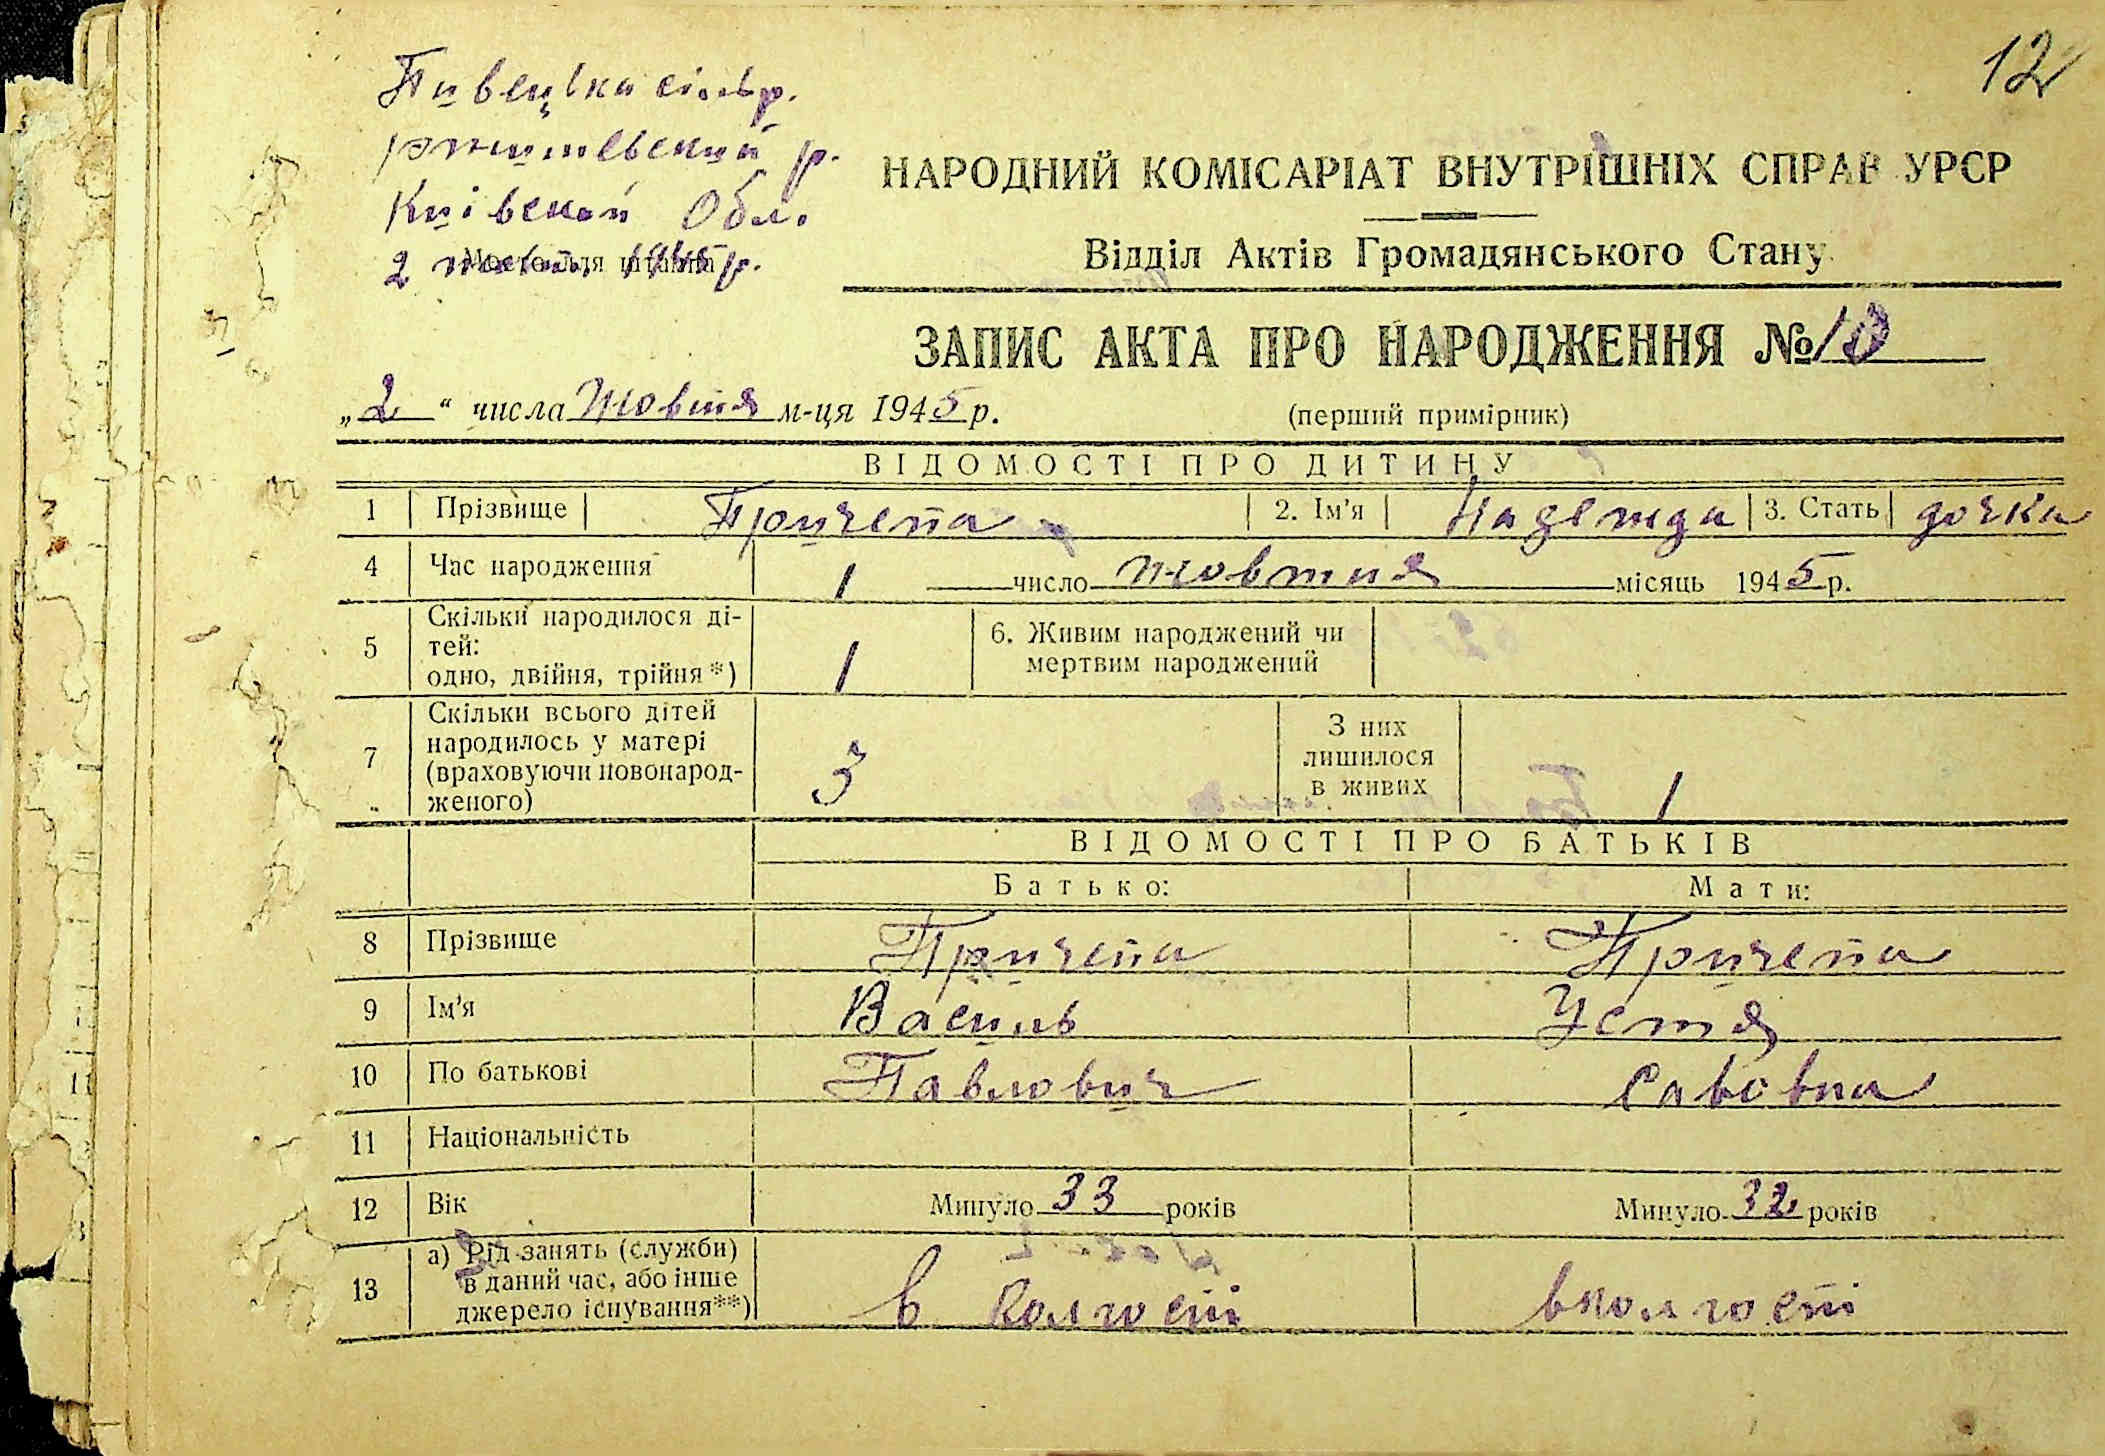 12
Пивецька сільр.
ржищевський р.
Київской Обл.
2 жовтня 1945 р.
НАРОДНИЙ КОМІСАРІАТ ВНУТРІШНІХ СПРАВ УРСР
Відділ Актів Громадянського Стану
ЗАПИС АКТА ПРО НАРОДЖЕННЯ № 10
„2“ числа Жовтня м-ця 1945 р.
(перший примірник)
ВІДОМОСТІ ПРО ДИТИНУ
1 Прізвище Причепа 2. Ім'я Надежда 3. Стать дочка
4 Час народження 1 число жовтня місяць 1945 р.
5 Скільки народилося ді-
тей:
одно, двійня, трійня*) 1
6. Живим народжений чи
мертвим народжений
7 Скільки всього дітей
народилось у матері
(враховуючи новонарод-
женого) 3
З них
лишилося
в живих 1
ВІДОМОСТІ ПРО БАТЬКІВ
Батько: Мати:
8 Прізвище Причепа Причепа
9 Ім'я Василь Устя
10 По батькові Павлович Савовна
11 Національність
12 Вік Минуло 33 років Минуло 32 років
13 а) Рід занять (служби)
в даний час, або інше
джерело існування**) в колгоспі вколгоспі